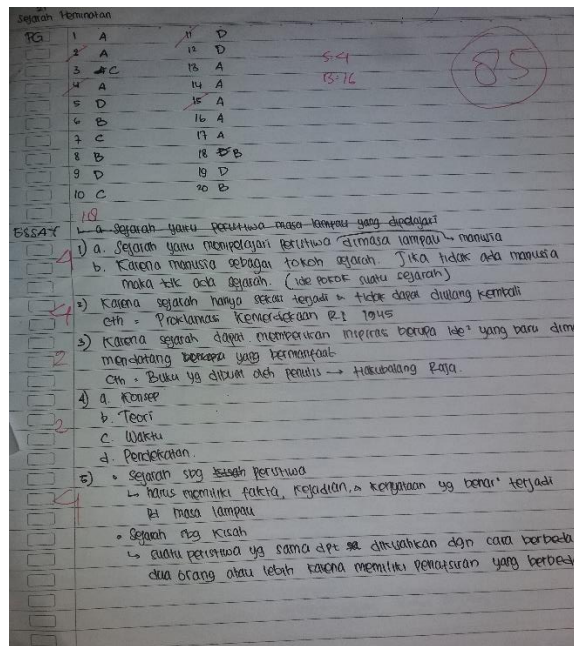 Sejarah Peminatan
PG 1 A 11 D
2 A 12 D
3 C 13 A
4 A 14 A
5 D 15 A
6 B 16 A
7 C 17 A
8 B 18 B
9 D 19 D
10 C 20 B
S=4
B=16
85
ESSAY 1. a sejarah yaitu peristiwa masa lampau yang dipelajari
1) a. Sejarah yaitu mempelajari peristiwa dimasa lampau manusia
b. Karena manusia sebagai tokoh sejarah. Jika tidak ada manusia
maka tdk ada sejarah. (ide pokok suatu sejarah)
4
2) Karena sejarah hanya sekali terjadi & tidak dapat diulang kembali
cth = Proklamasi Kemerdekaan RI 1945
4
3) Karena sejarah dapat memberikan inspirasi berupa ide² yang baru dim
mendatang yang bermanfaat
Cth = Buku yg dibuat oleh penulis → Raja.
2
4) a. Konsep
b. Teori
c. Waktu
d. Pendekatan.
2
5) • Sejarah sbg peristiwa
↳ harus memiliki fakta, kejadian, & kenyataan yg benar² terjadi
di masa lampau
4
• Sejarah sbg kisah
↳ suatu peristiwa yg sama dpt dikisahkan dgn cara berbeda
dua orang atau lebih karena memiliki penafsiran yang berbeda